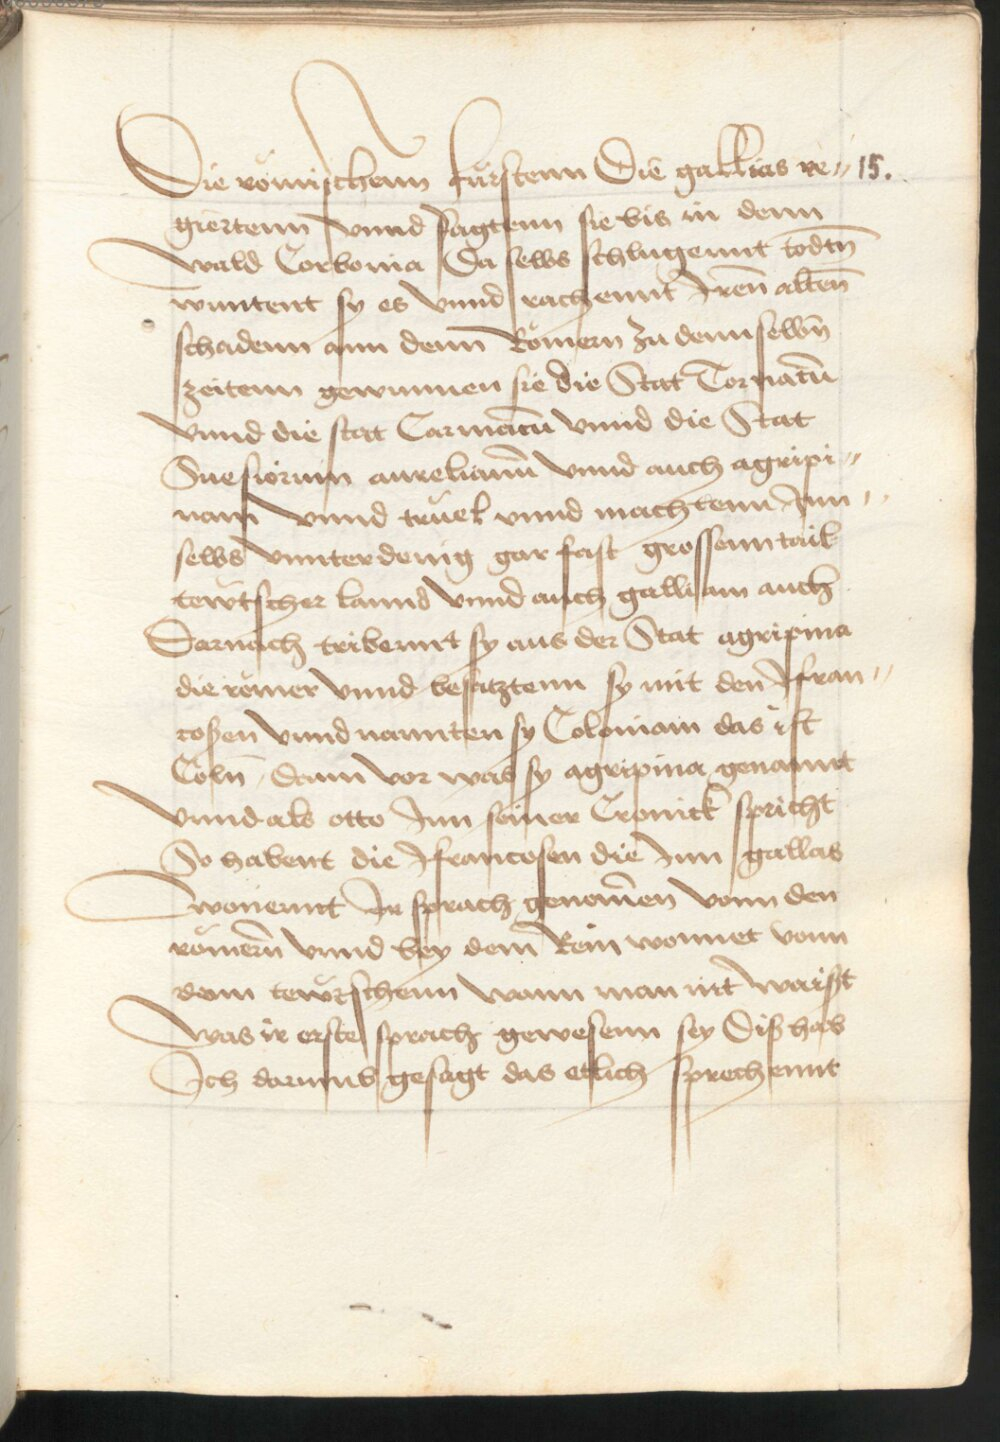 Die römischenn fürstenn Die gallias re〃 15.
giertenn vnnd sagtenn sie bis in denn
wald Corbonia Da selbs schlugennt todtn̄
wuntent sy es vnnd rachennt Iren̄ alten̄
schadenn ann denn Römern zu dennselbn̄
zeitenn gewunnen sie die Stat Tornacū
vnnd die stat Carmacū vnnd die Stat
Suesiorum aurelianū vnnd auch agripi〃
nam vnnd truel vnnd machtenn Inn〃
selbs vnnterdenig gar fast grossenn tail
tewtscher lannd vnnd auch galliam auch
Darnach tribennt sy aus der Stat agripina
die römer vnnd besatztenn sy mit den Ffran〃
cosen vnnd nannten sy Coloniam das ist
Cöln̄ dann vor was sy agripina genannt
vnnd als otto Inn seiner Cronick spricht
So habent die Ffrancosen die Inn gallas
wonennt Ir sprach genom̄en vonn den
römern̄ vnnd bey dem Rein wonnet vonn
denn tewtschenn wann man nit waist
was ir erste sprach gewesenn sey Diß hab
Ich darumb gesagt das etlich sprechennt